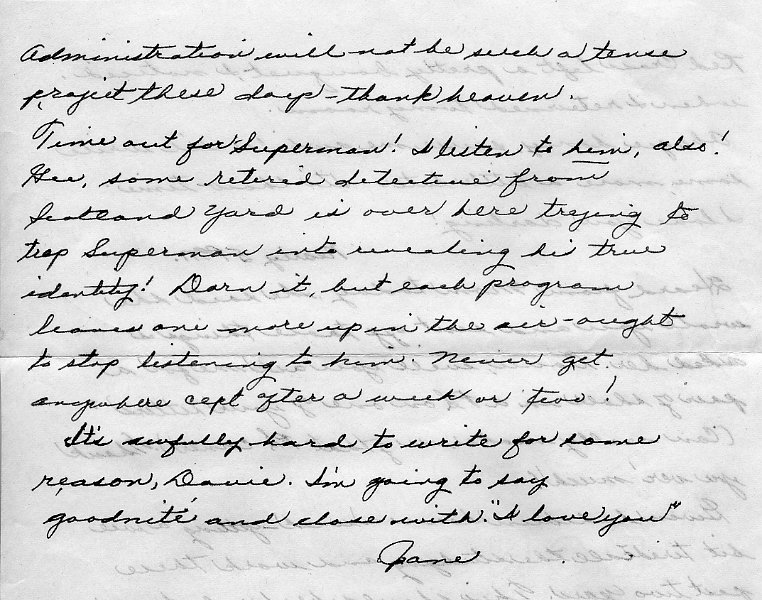 Administration will not be such a tense
project these days - thank heaven.
Time out for Superman! I listen to him, also!
Gee, some retired detective from
Scotland Yard is over here trying to
trap Superman into revealing his true
identity! Darn it, but each program
leaves one more up in the air - ought
to stop listening to him. Never get
anywhere cept after a week or two!
It's awfully hard to write for some
reason, Davie. I'm going to say
goodnite and close with "I love you"
Jane